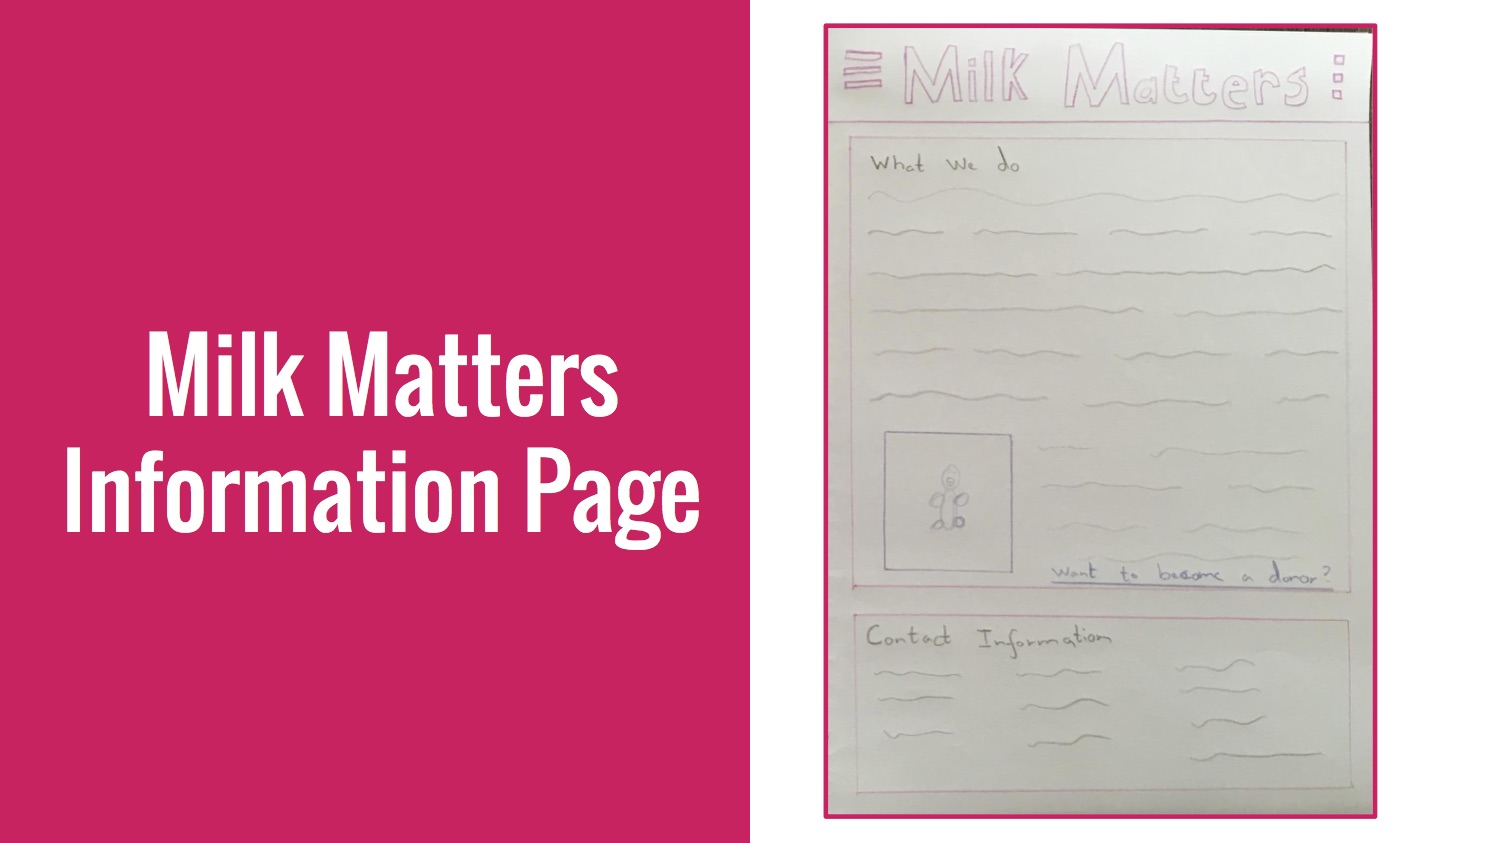 Milk Matters
Information Page
Milk Matters
What we do
Want to become a donor?
Contact Information